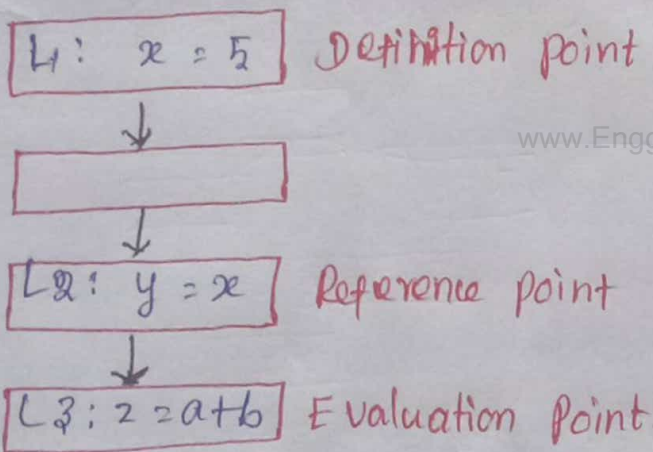 L1: x = 5 Definition point
www.Engg
L2: y = x Reference point
L3: z = a+b Evaluation Point